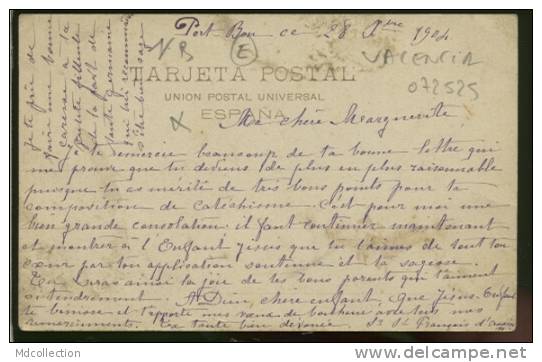 Port Bou ce 28 Xbre 1904
N B
E
VALENCIA
072525
TARJETA POSTAL
UNION POSTAL UNIVERSAL
ESPAÑA
Ma chère Marguerite,
Je remercie beaucoup de ta bonne lettre qui
me prouve que tu deviens de plus en plus raisonnable
puisque tu as mérité de très bons points pour ta
composition de catéchisme. C'est pour moi une
bien grande consolation; il faut continuer maintenant
et montrer à l'Enfant Jésus que tu l'aimes de tout ton
cœur par ton application soutenue et ta sagesse.
Tu seras ainsi la joie de tes bons parents qui t'aiment
si tendrement. A Dieu, chère enfant, que Jésus Enfant
te bénisse et t'apporte mes vœux de bonheur avec tous mes
remerciements. Ta tante bien dévouée. Sr St François
Je te prie de
faire une bonne
caresse à la
petite filleule
de la part de
tante Germaine
qui lui recommande
d'être bien sage
Mdcollection
http://www.delcampe.net